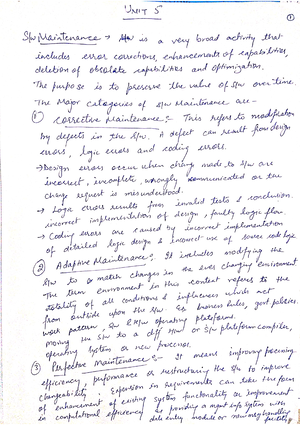 UNIT 5
1
S/w Maintenance → S/w is a very broad activity that
includes error corrections, enhancements of capabilities,
deletion of obsolete capabilities and optimization.
The purpose is to preserve the value of S/w over time.
The Major Categories of S/w Maintenance are -
1) Corrective Maintenance :- This refers to modification
by defects in the S/w. A defect can result from design
errors, logic errors and coding errors.
→ Design errors occur when change made to S/w are
incorrect, incomplete, wrongly communicated or the
change request is misunderstood.
→ Logic errors results from invalid tests & conclusion.
incorrect implementation of design, faulty logic flow.
→ Coding errors are caused by incorrect implementation
of detailed logic design & incorrect use of source code logic
2) Adaptive Maintenance :- It includes modifying the
S/w to match changes in the ever changing environment
The term environment in this context refers to the
totality of all conditions & influences which act
from outside upon the S/w. Business rules, govt policies.
work pattern, S/w & H/w operating platforms.
Moving the S/w to a diff H/w or S/w platform compiler,
operating system or new processor.
3) Perfective Maintenance :- It means improving processing
efficiency, performance or restructuring the S/w to improve
changeability. Expansion in requirements can take the form
of enhancement of existing system functionality or improvement
in computational efficiency. providing a mgmt info system with
data entry module or